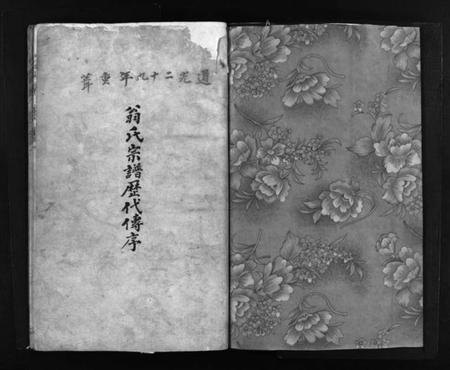 道光二十九年重葺
翁氏宗譜歷代傳序